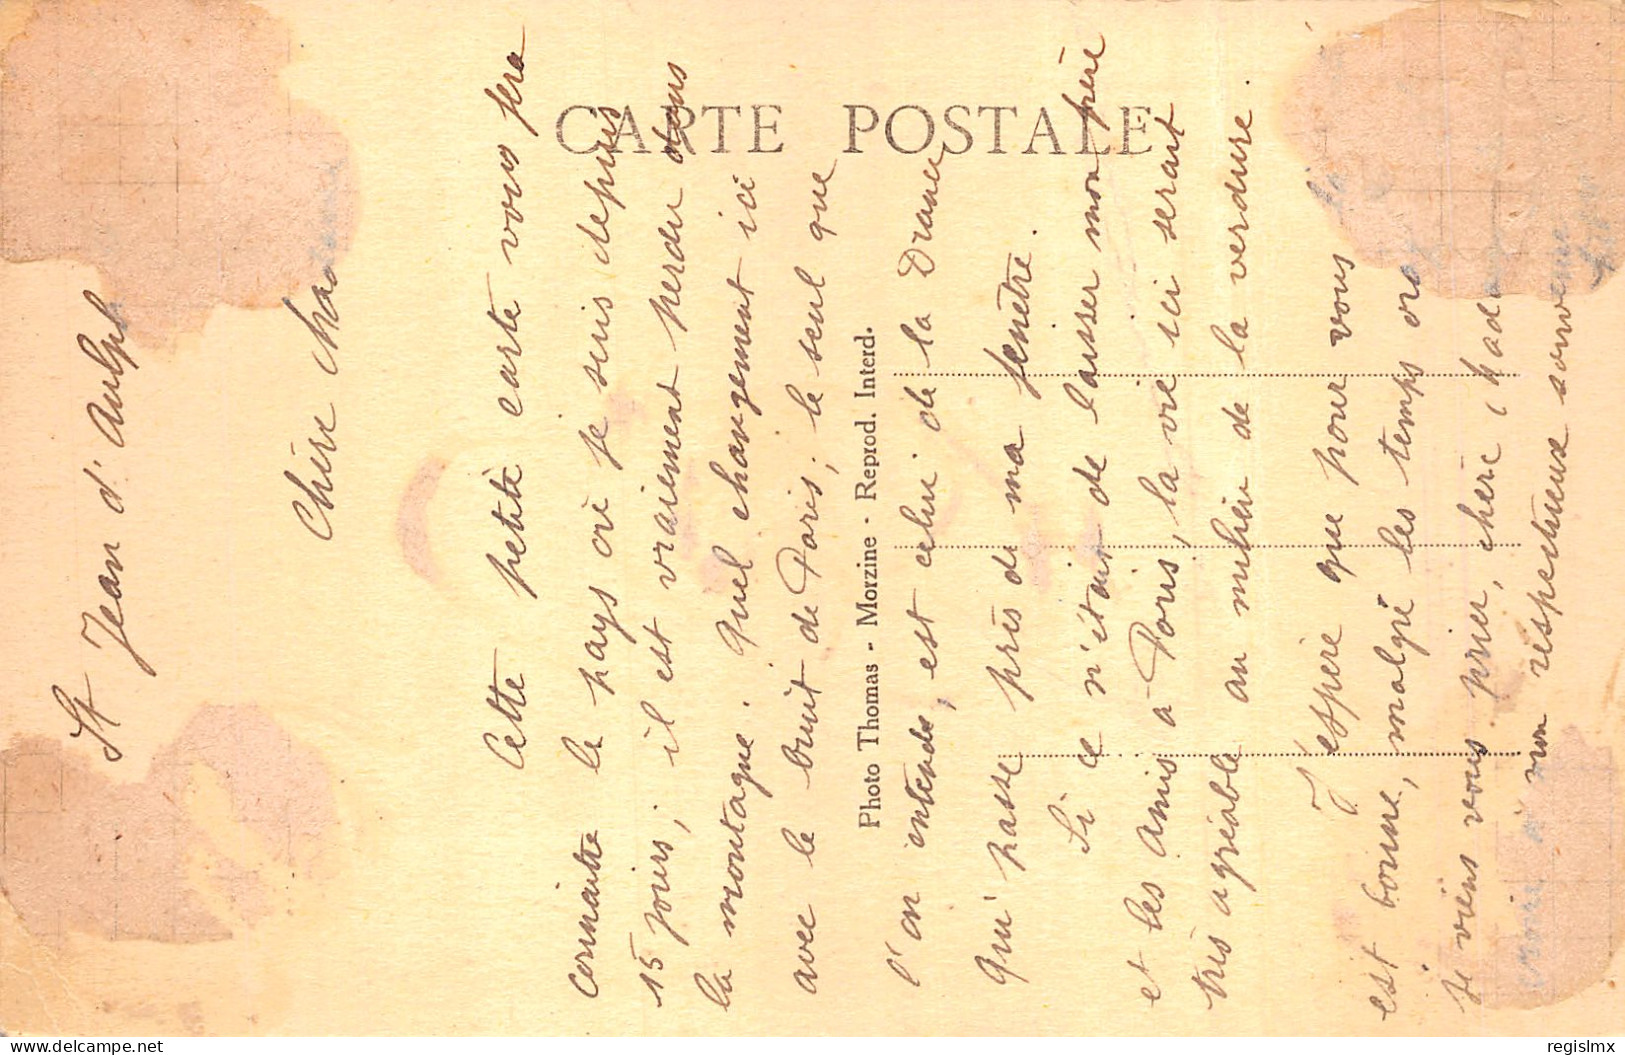 CARTE POSTALE
Photo Thomas - Morzine - Reprod. Interd.
St Jean d'Aulph
Chère Madame
Cette petite carte vous fera
connaître le pays où je suis depuis
15 jours, il est vraiment perdu dans
la montagne. Quel changement ici
avec le bruit de Paris, le seul que
l'on entende, est celui de la Dranse
qui passe près de ma fenêtre.
Si ce n'était de laisser mon père
et les amis à Paris, la vie ici serait
très agréable au milieu de la verdure.
J'espère que pour vous
est bonne, malgré les temps
je viens vous prier, chère Mad
mon respectueux souvenir
delcampe.net
regislmx